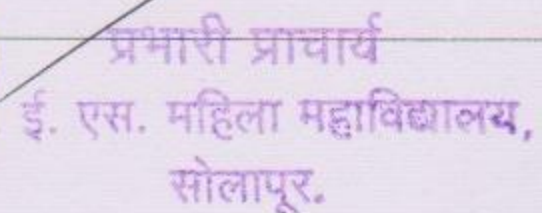 प्रभारी प्राचार्य
ई. एस. महिला महाविद्यालय,
सोलापूर.